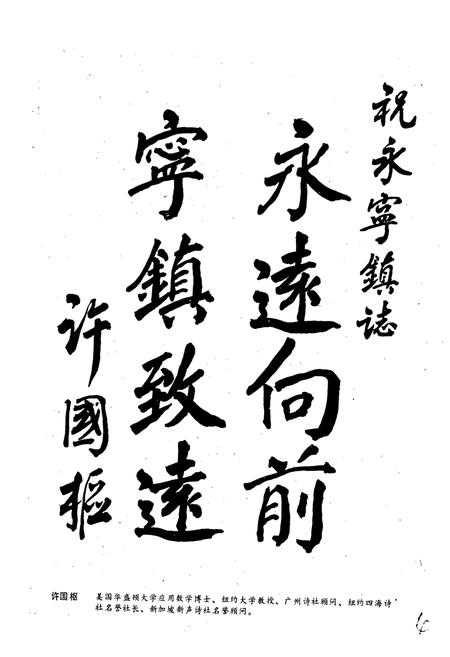 祝永寧鎮誌
永遠向前
寧鎮致遠
许國樞
许国枢 美国华盛顿大学应用数学博士、纽约大学教授、广州诗社顾问、纽约四海诗
社名誉社长、新加坡新声诗社名誉顾问。